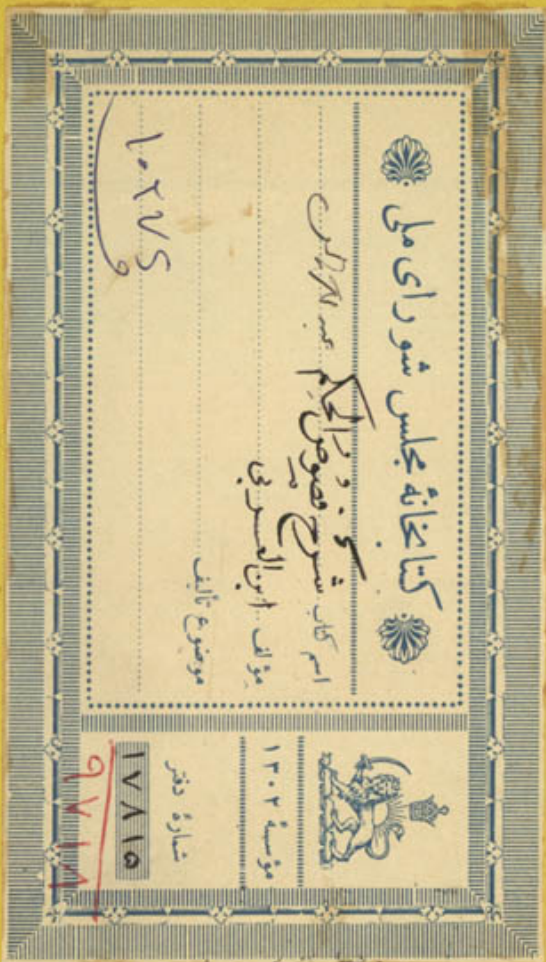 کتابخانهٔ مجلس شورای ملی
اسم کتاب شرح فصوص الحکم
مؤلف ابن العربی
موضوع تألیف
مؤسسهٔ ۱۳۰۲
شمارهٔ دفتر
۱۷۸۱۵
۹۷۱۸